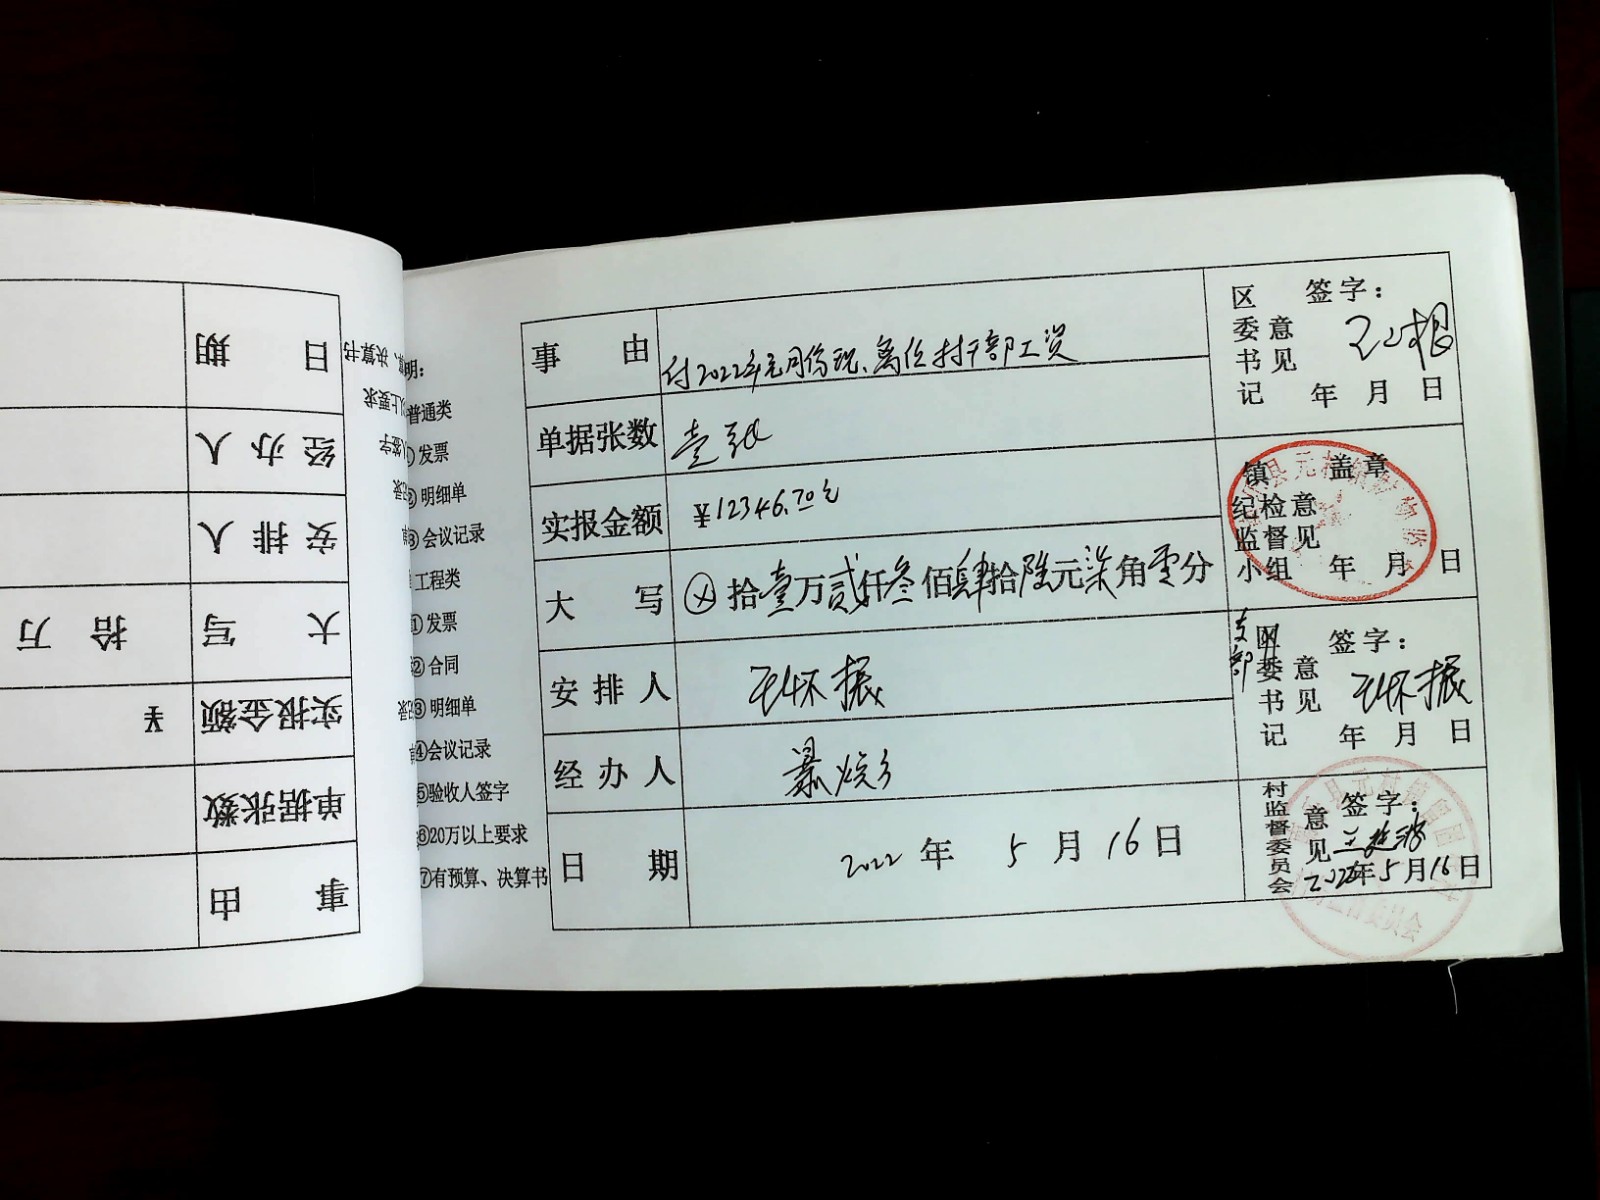 日 期
经 办 人
安 排 人
大 写 拾 万
实报金额 ￥
单据张数
事 由
明:
普通类
①发票
②明细单
③会议记录
工程类
①发票
②合同
③明细单
④会议记录
⑤验收人签字
⑥20万以上要求
⑦有预算、决算书
事 由 付2022年元月份现、离任村干部工资
单据张数 壹张
实报金额 ￥12346.70元
大 写 ⊗拾壹万贰仟叁佰肆拾陆元柒角零分
安 排 人 王怀振
经 办 人
日 期 2022 年 5 月 16 日
区委书记意见 签字:
年 月 日
镇纪检监督小组意见 盖章
年 月 日
支部
区委书记意见 签字:
王怀振
年 月 日
村监督委员会意见 签字:
2022年5月16日